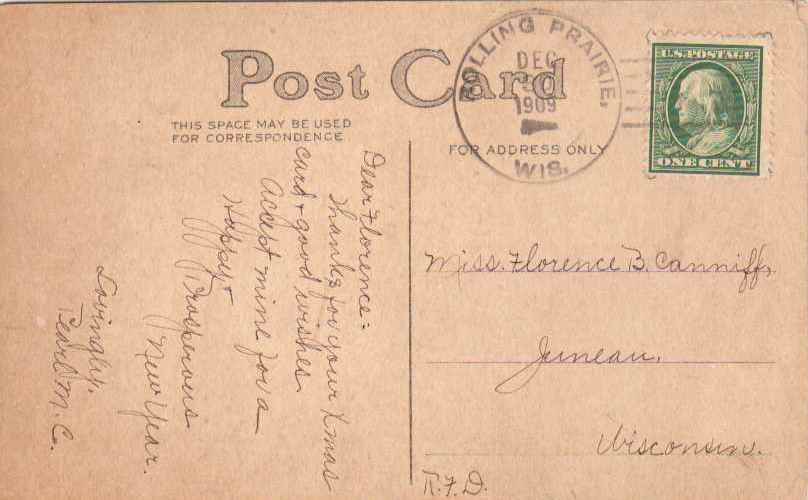 Post Card
THIS SPACE MAY BE USED
FOR CORRESPONDENCE
FOR ADDRESS ONLY
ROLLING PRAIRIE,
DEC
1909
WIS.
U.S. POSTAGE
ONE CENT
Dear Florence:
Thanks for your Xmas
card + good wishes
Accept mine for a
Happy +
Prosperous
New Year.
Lovingly,
Pearl M. C.
Miss. Florence B. Canniff,
Juneau,
Wisconsin.
R.F.D.